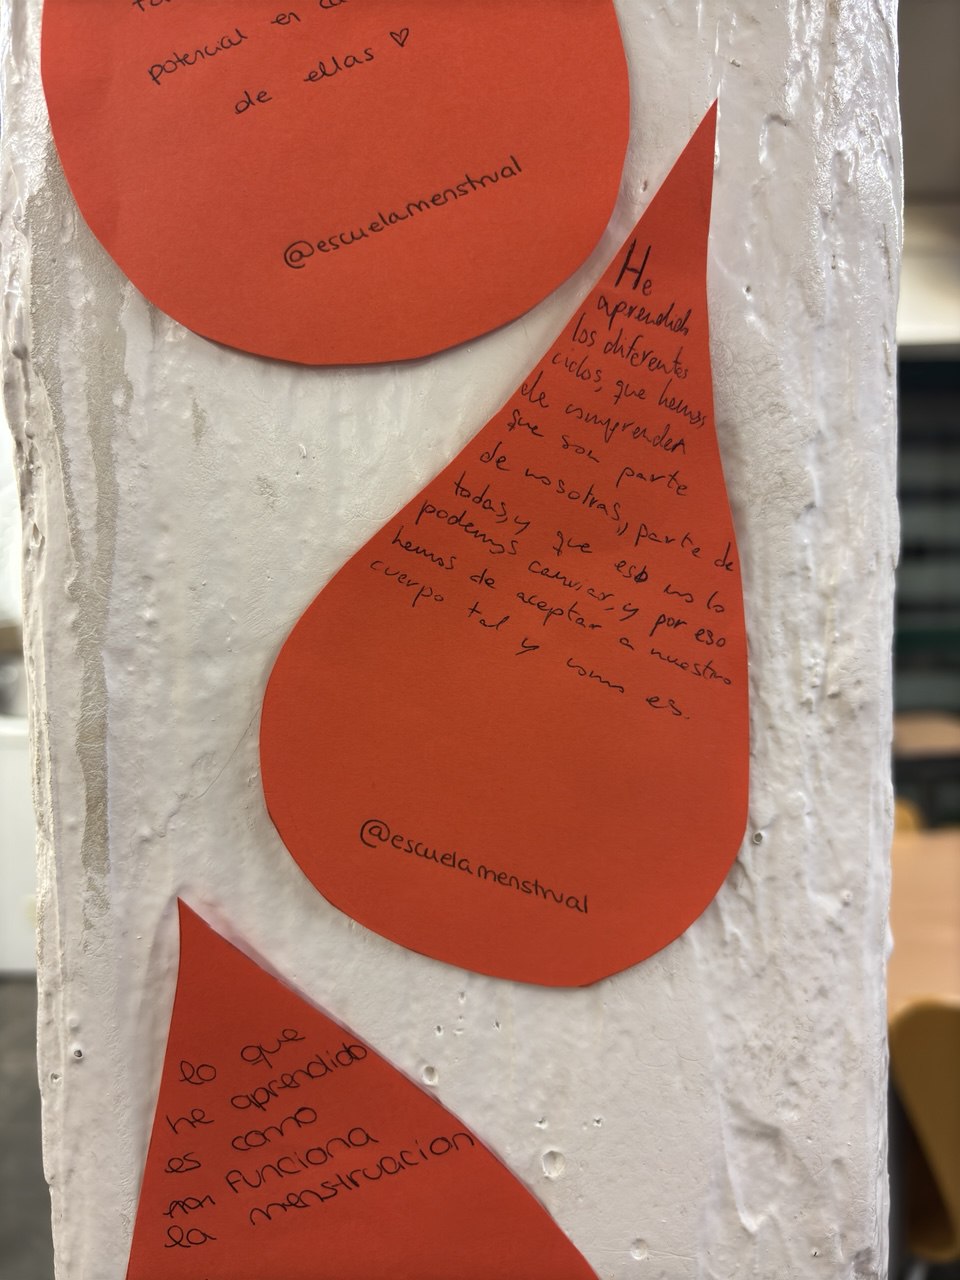 potencial en
de ellas ♡
@escuelamenstrual
He
aprendido
los diferentes
ciclos, que hemos
de comprender
que son parte
de nosotras, parte de
todas, y que eso no lo
podemos canviar, y por eso
hemos de aceptar a nuestro
cuerpo tal y como es.
@escuelamenstrual
lo que
he aprendido
es como
funciona
la menstruacion